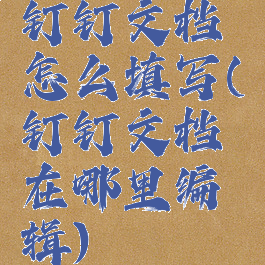 钉钉文档
怎么填写(
钉钉文档
在哪里编
辑)